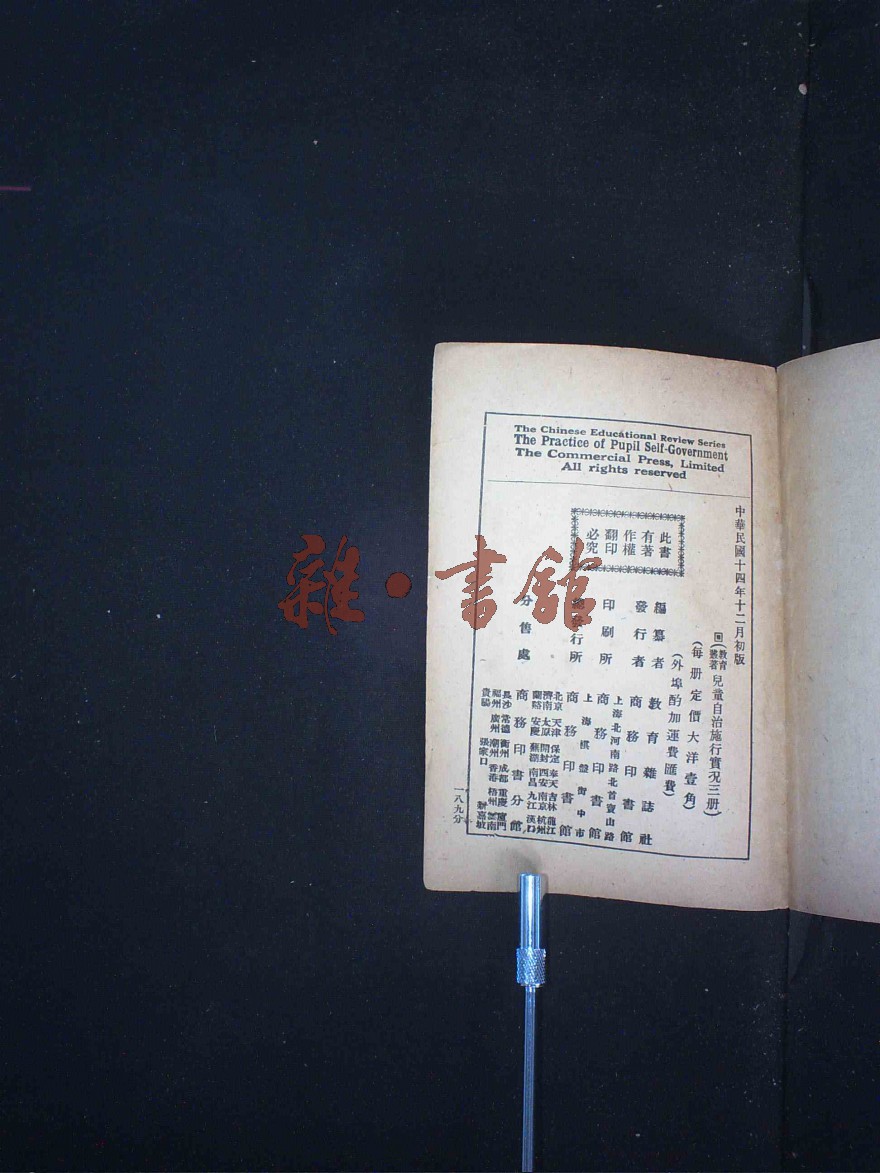 The Chinese Educational Review Series
The Practice of Pupil Self-Government
The Commercial Press, Limited
All rights reserved
中華民國十四年十二月初版
(教育叢著兒童自治施行實況三册)
(每册定價大洋壹角)
(外埠酌加運費匯費)
此書
有著
作權
翻印
必究
編纂者 教育雜誌社
發行者 商務印書館
印刷所 上海北河南路北首寶山路 商務印書館
總發行所 上海棋盤街中市 商務印書館
分售處 商務印書分館
北京 天津 保定 奉天 吉林 龍江
濟南 太原 開封 西安 南京 杭州
蘭谿 安慶 蕪湖 南昌 九江 漢口
長沙 常德 衡州 成都 重慶 廈門
福州 廣州 潮州 香港 梧州 雲南
貴陽 張家口 新嘉坡
一八九分
雜·書館